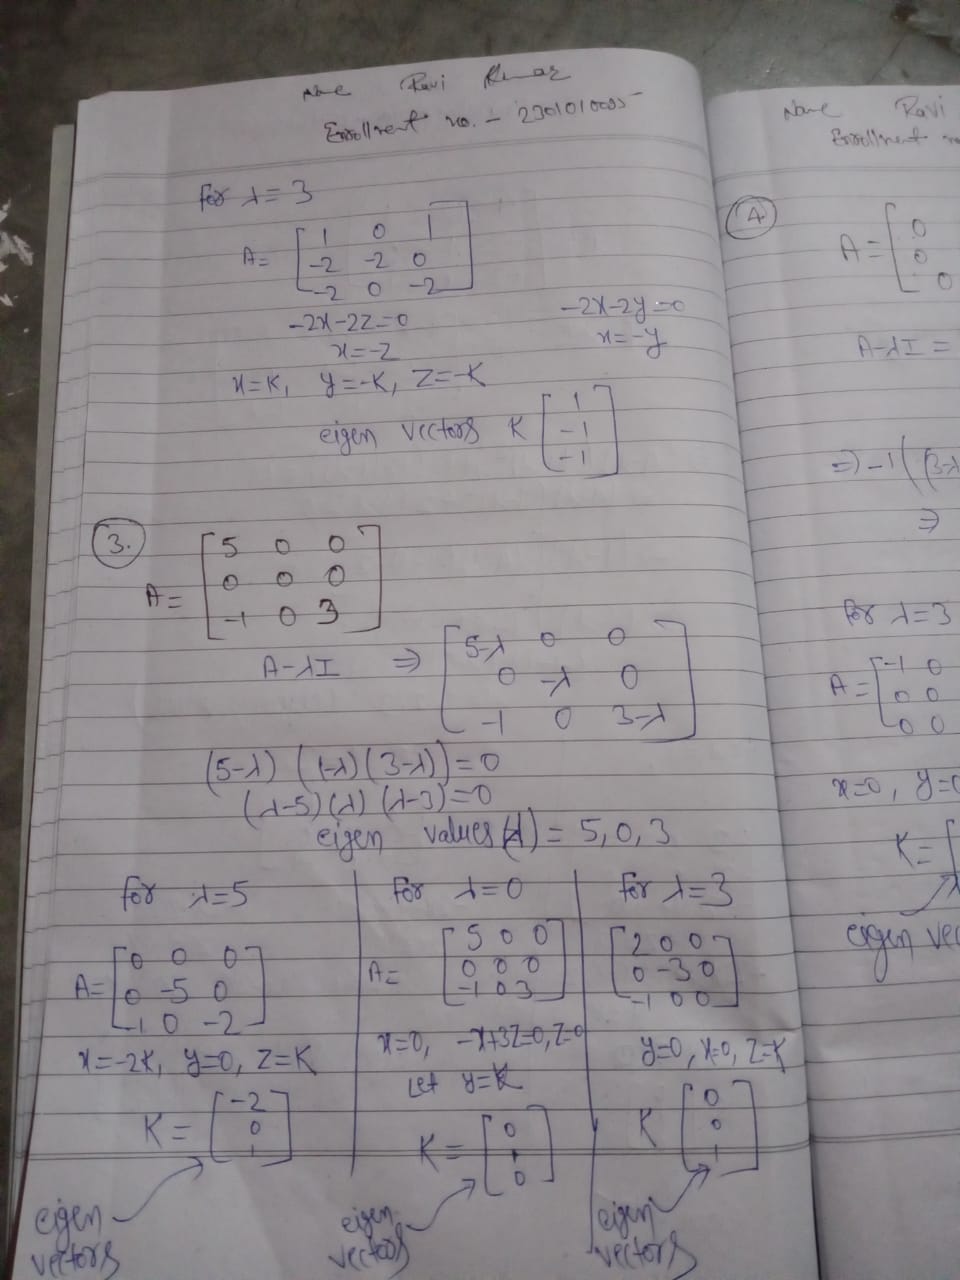 Name Ravi Kumar
Enrollment no. - 2301010085
for λ=3
A= [ 1 0 1
-2 -2 0
-2 0 -2 ]
-2x-2z=0 -2x-2y=0
x=-z x=-y
x=K, y=-K, z=-K
eigen vectors K [ 1
-1
-1 ]
3.
A= [ 5 0 0
0 0 0
-1 0 3 ]
A-λI ⇒ [ 5-λ 0 0
0 -λ 0
-1 0 3-λ ]
(5-λ) (-λ)(3-λ))=0
(λ-5)(λ)(λ-3)=0
eigen values(λ) = 5,0,3
for λ=5
A= [ 0 0 0
0 -5 0
-1 0 -2 ]
x=-2K, y=0, z=K
K = [ -2
0
1 ]
eigen
vectors
for λ=0
A= [ 5 0 0
0 0 0
-1 0 3 ]
x=0, -x+3z=0, z=0
Let y=K
K= [ 0
1
0 ]
eigen
vectors
for λ=3
[ 2 0 0
0 -3 0
-1 0 0 ]
y=0, x=0, z=K
K [ 0
0
1 ]
eigen
vectors
Name Ravi
Enrollment
4.
A= [ 0
0
0
A-λI =
⇒ -1((3-λ
⇒
for λ=3
A= [ -1 0
0 0
0 0
x=0, y=0
K= [
eigen vec